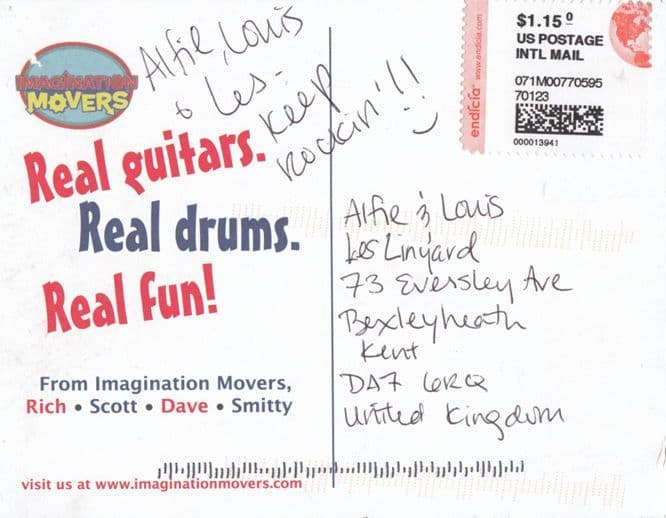 IMAGINATION
MOVERS
Alfie, Louis
& Les-
Keep
Rockin'!!
Real guitars.
Real drums.
Real fun!
From Imagination Movers,
Rich • Scott • Dave • Smitty
visit us at www.imaginationmovers.com
endicia www.endicia.com
$1.15 0
US POSTAGE
INTL MAIL
071M00770595
70123
000013941
Alfie & Louis
Les Linyard
73 Eversley Ave
Bexleyheath
Kent
DA7 6RQ
United Kingdom